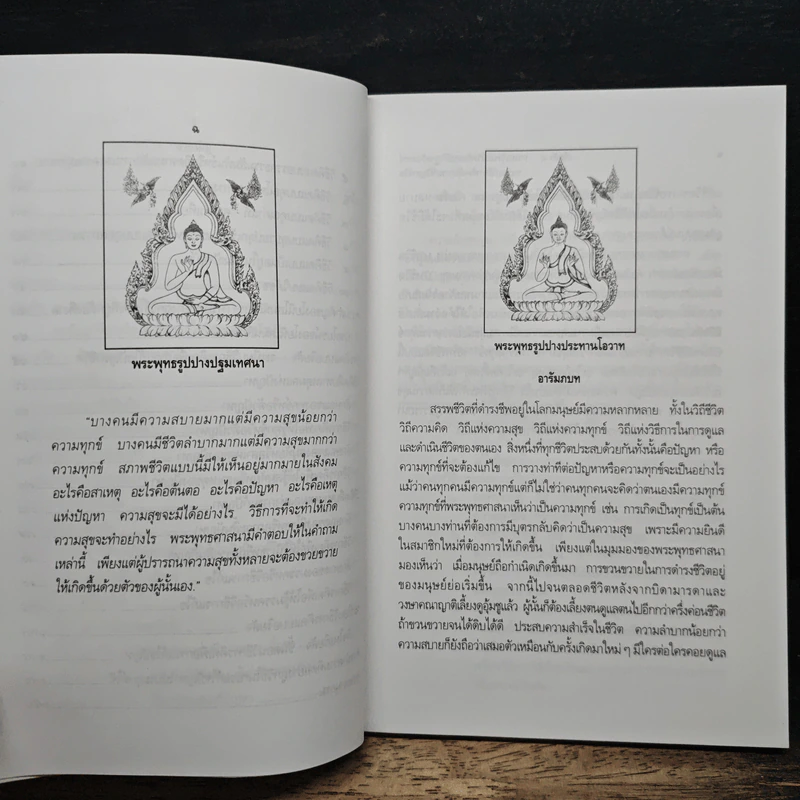 ฉ
พระพุทธรูปปางปฐมเทศนา
"บางคนมีความสบายมากแต่มีความสุขน้อยกว่า
ความทุกข์ บางคนมีชีวิตลำบากมากแต่มีความสุขมากกว่า
ความทุกข์ สภาพชีวิตแบบนี้มีให้เห็นอยู่มากมายในสังคม
อะไรคือสาเหตุ อะไรคือต้นตอ อะไรคือปัญหา อะไรคือเหตุ
แห่งปัญหา ความสุขจะมีได้อย่างไร วิธีการที่จะทำให้เกิด
ความสุขจะทำอย่างไร พระพุทธศาสนามีคำตอบให้ในคำถาม
เหล่านี้ เพียงแต่ผู้ปรารถนาความสุขทั้งหลายจะต้องขวยขวาย
ให้เกิดขึ้นด้วยตัวของผู้นั้นเอง."
พระพุทธรูปปางประทานโอวาท
อารัมภบท
สรรพชีวิตที่ดำรงชีพอยู่ในโลกมนุษย์มีความหลากหลาย ทั้งในวิถีชีวิต
วิถีความคิด วิถีแห่งความสุข วิถีแห่งความทุกข์ วิถีแห่งวิธีการในการดูแล
และดำเนินชีวิตของตนเอง สิ่งหนึ่งที่ทุกชีวิตประสบด้วยกันทั้งนั้นคือปัญหา หรือ
ความทุกข์ที่จะต้องแก้ไข การวางท่าทีต่อปัญหาหรือความทุกข์จะเป็นอย่างไร
แม้ว่าทุกคนมีความทุกข์แต่ก็ไม่ใช่ว่าคนทุกคนจะคิดว่าตนเองมีความทุกข์
ความทุกข์ที่พระพุทธศาสนาเห็นว่าเป็นความทุกข์ เช่น การเกิดเป็นทุกข์เป็นต้น
บางคนบางท่านที่ต้องการมีบุตรกลับคิดว่าเป็นความสุข เพราะมีความยินดี
ในสมาชิกใหม่ที่ต้องการให้เกิดขึ้น เพียงแต่ในมุมมองของพระพุทธศาสนา
มองเห็นว่า เมื่อมนุษย์ถือกำเนิดเกิดขึ้นมา การขวนขวายในการดำรงชีวิตอยู่
ของมนุษย์ย่อเริ่มขึ้น จากนี้ไปจนตลอดชีวิตหลังจากบิดามารดาและ
วงษาคณาญาติเลี้ยงดูอุ้มชูแล้ว ผู้นั้นก็ต้องเลี้ยงตนดูแลตนไปอีกกว่าครึ่งค่อนชีวิต
ถ้าขวนขวายจนได้ดิบได้ดี ประสบความสำเร็จในชีวิต ความลำบากน้อยกว่า
ความสบายก็ยังถือว่าเสมอตัวเหมือนกับครั้งเกิดมาใหม่ ๆ มีใครต่อใครคอยดูแล